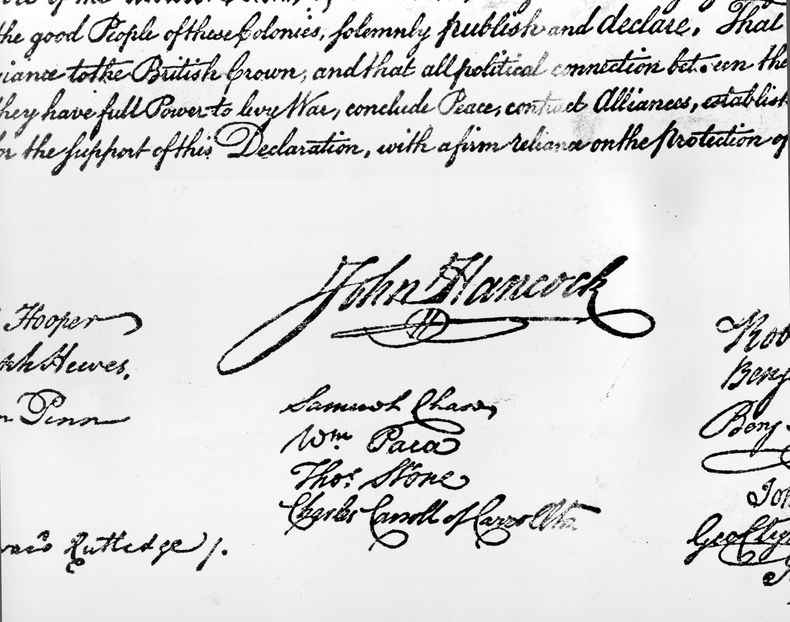 the good People of these Colonies, solemnly publish and declare, That
iance to the British Crown, and that all political connection between the
they have full Power to levy War, conclude Peace, contract Alliances, establish
or the support of this Declaration, with a firm reliance on the Protection of
John Hancock
Hooper
Hewes,
Penn
Samuel Chase
Wm Paca
Thos. Stone
Charles Carroll of Carrollton
Rutledge /.
Rob
Benj
Benj
Joh
Geo Cly